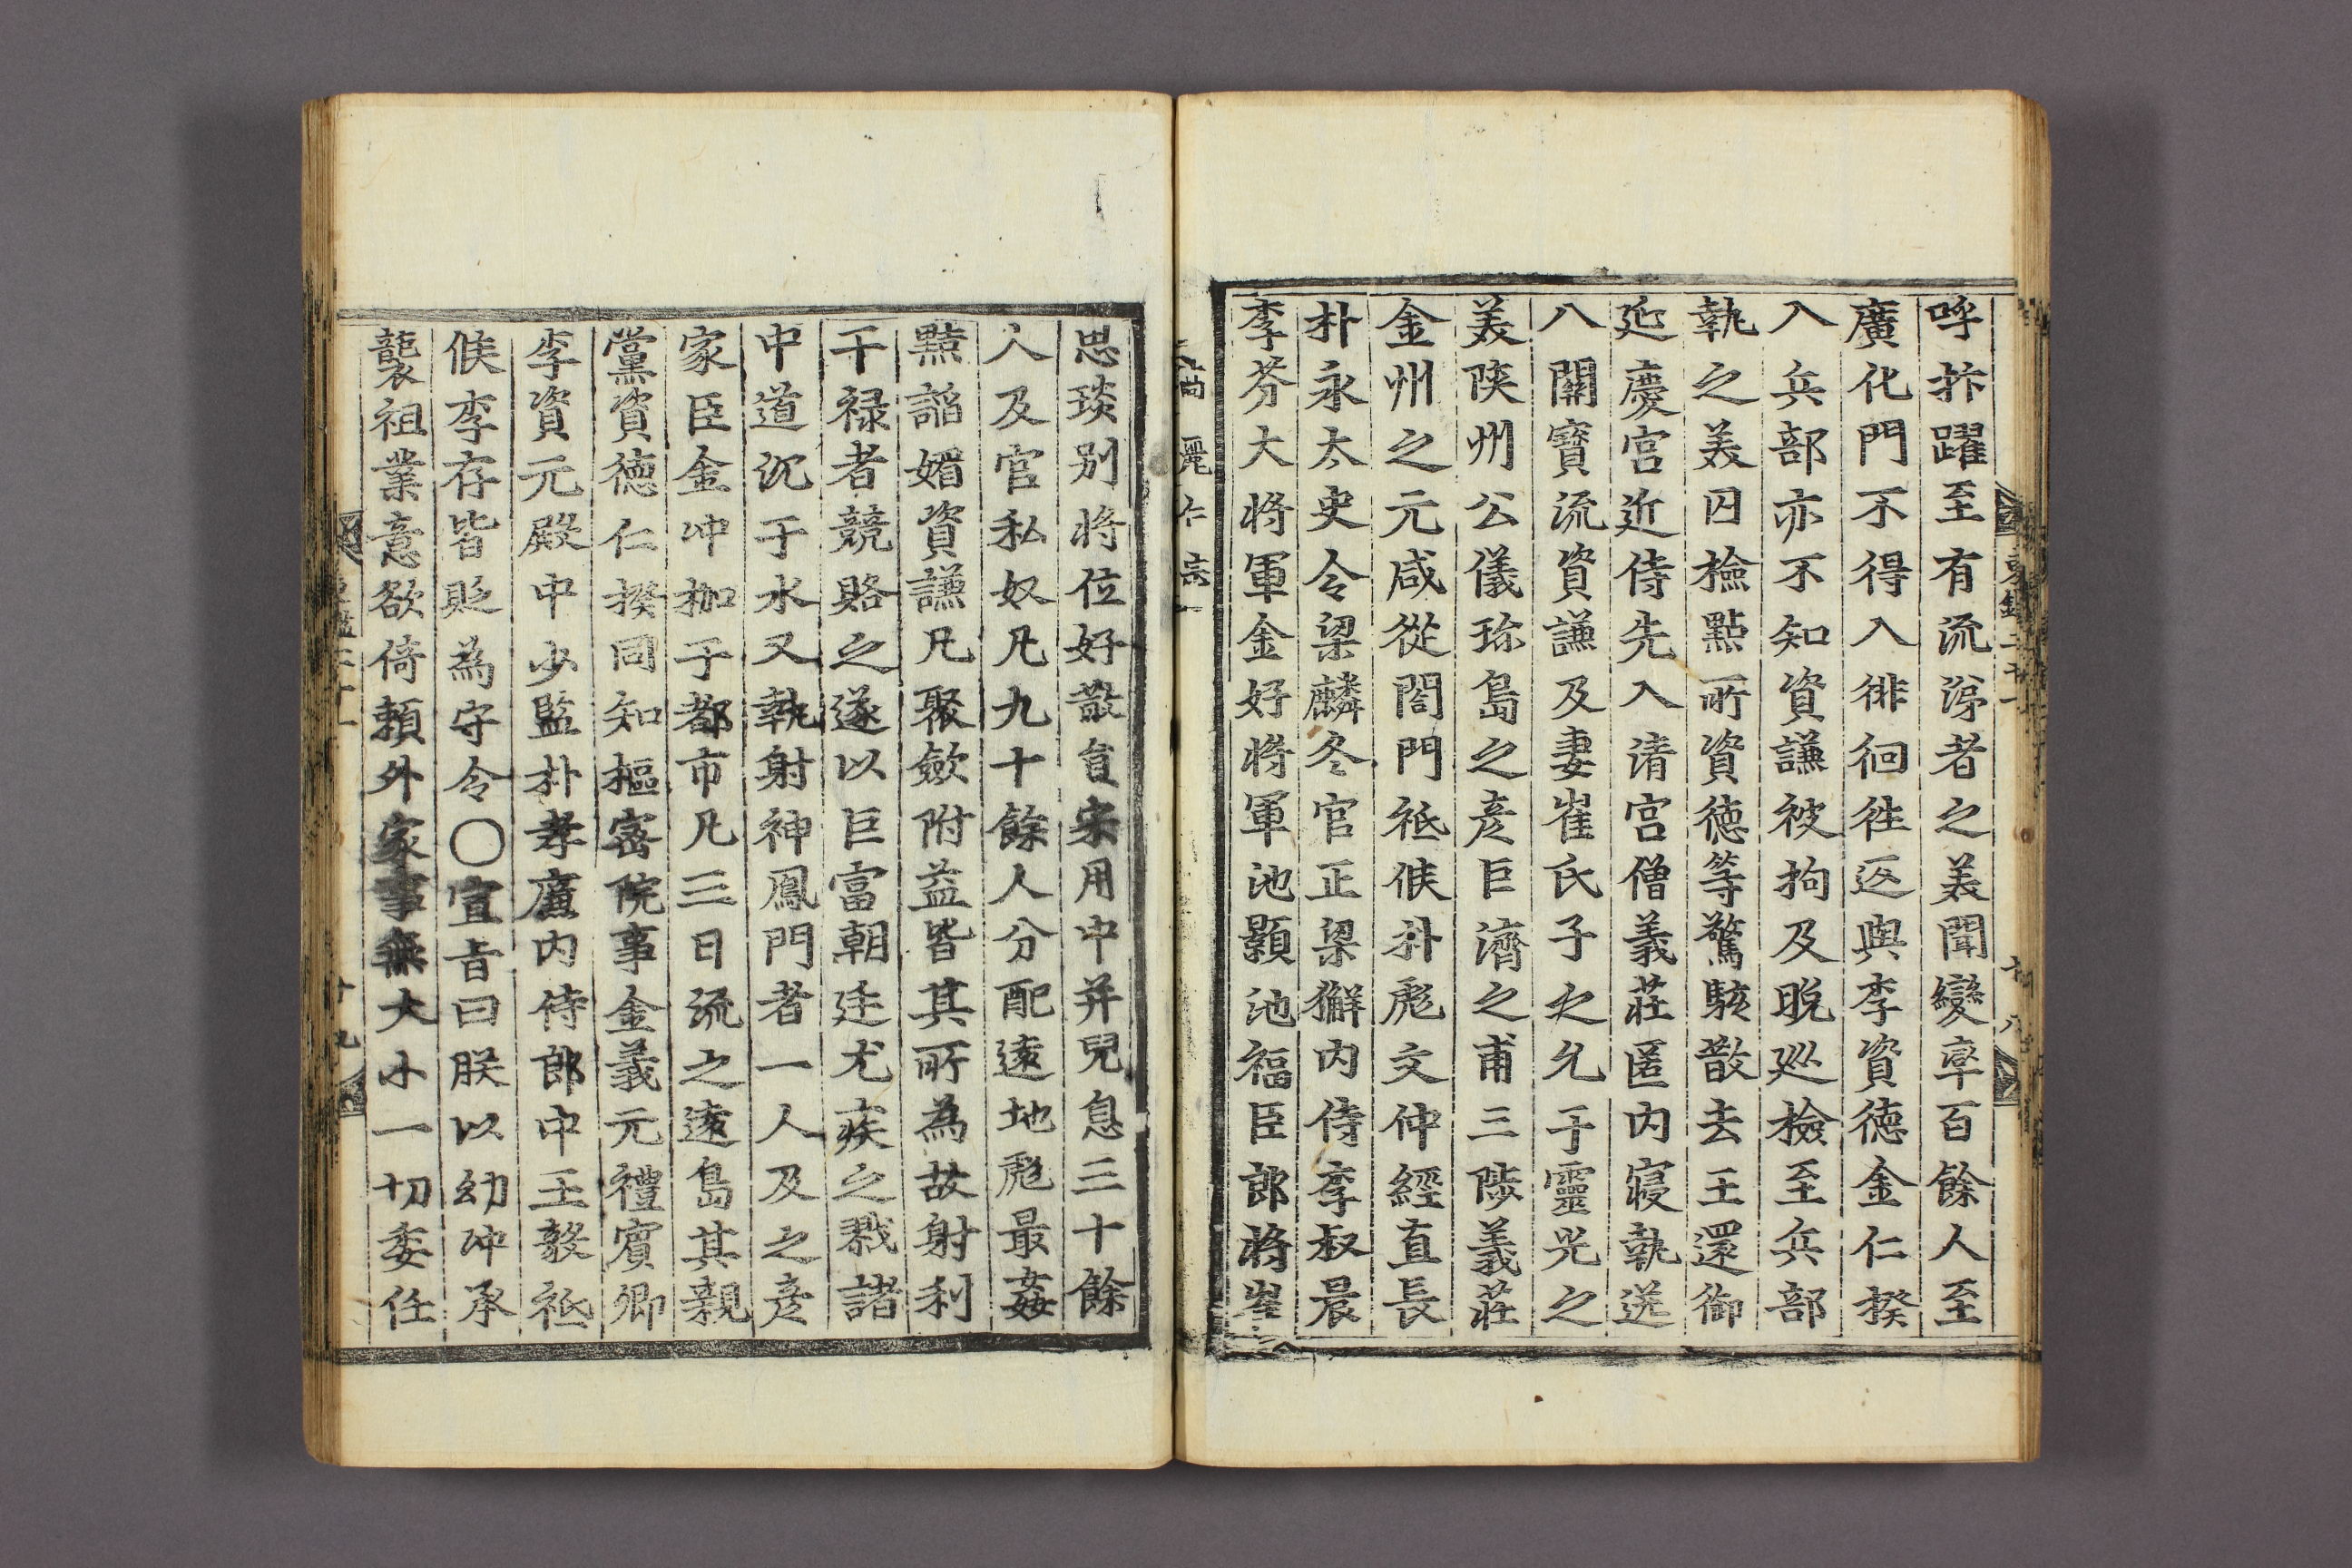 呼抃躍至有流涕者之美聞變率百餘人至
廣化門不得入徘徊往返與李資德金仁揆
入兵部亦不知資謙被拘及晩廵檢至兵部
執之美囚檢點所資德等驚駭散去王還御
延慶宮近侍先入清宮僧義莊匿内寢執送
八關寶流資謙及妻崔氏子之允于靈光之
美陜州公儀珎島之彦巨濟之甫三陟義莊
金州之元咸從閤門祗候朴彪文仲經直長
朴永太史令梁麟冬官正梁獬内侍李叔晨
李芬大將軍金好將軍池顥池福臣郎將崔
高麗仁宗
東鑑二十一 十八
思琰别將位好散員宋用中并兒息三十餘
人及官私奴凡九十餘人分配遠地彪最姦
黠謟媚資謙凡聚歛附益皆其所為故射利
干禄者競賂之遂以巨富朝廷尤疾之戮諸
中道沉于水又執射神鳳門者一人及之彦
家臣金冲枷于都市凡三日流之遠島其親
黨資德仁揆同知樞密院事金義元禮賓卿
李資元殿中少監朴孝廉内侍郎中王毅祗
候李存皆貶為守令〇宣旨曰朕以幼冲承
襲祖業意欲倚頼外家事無大小一切委任
東鑑二十一 十九